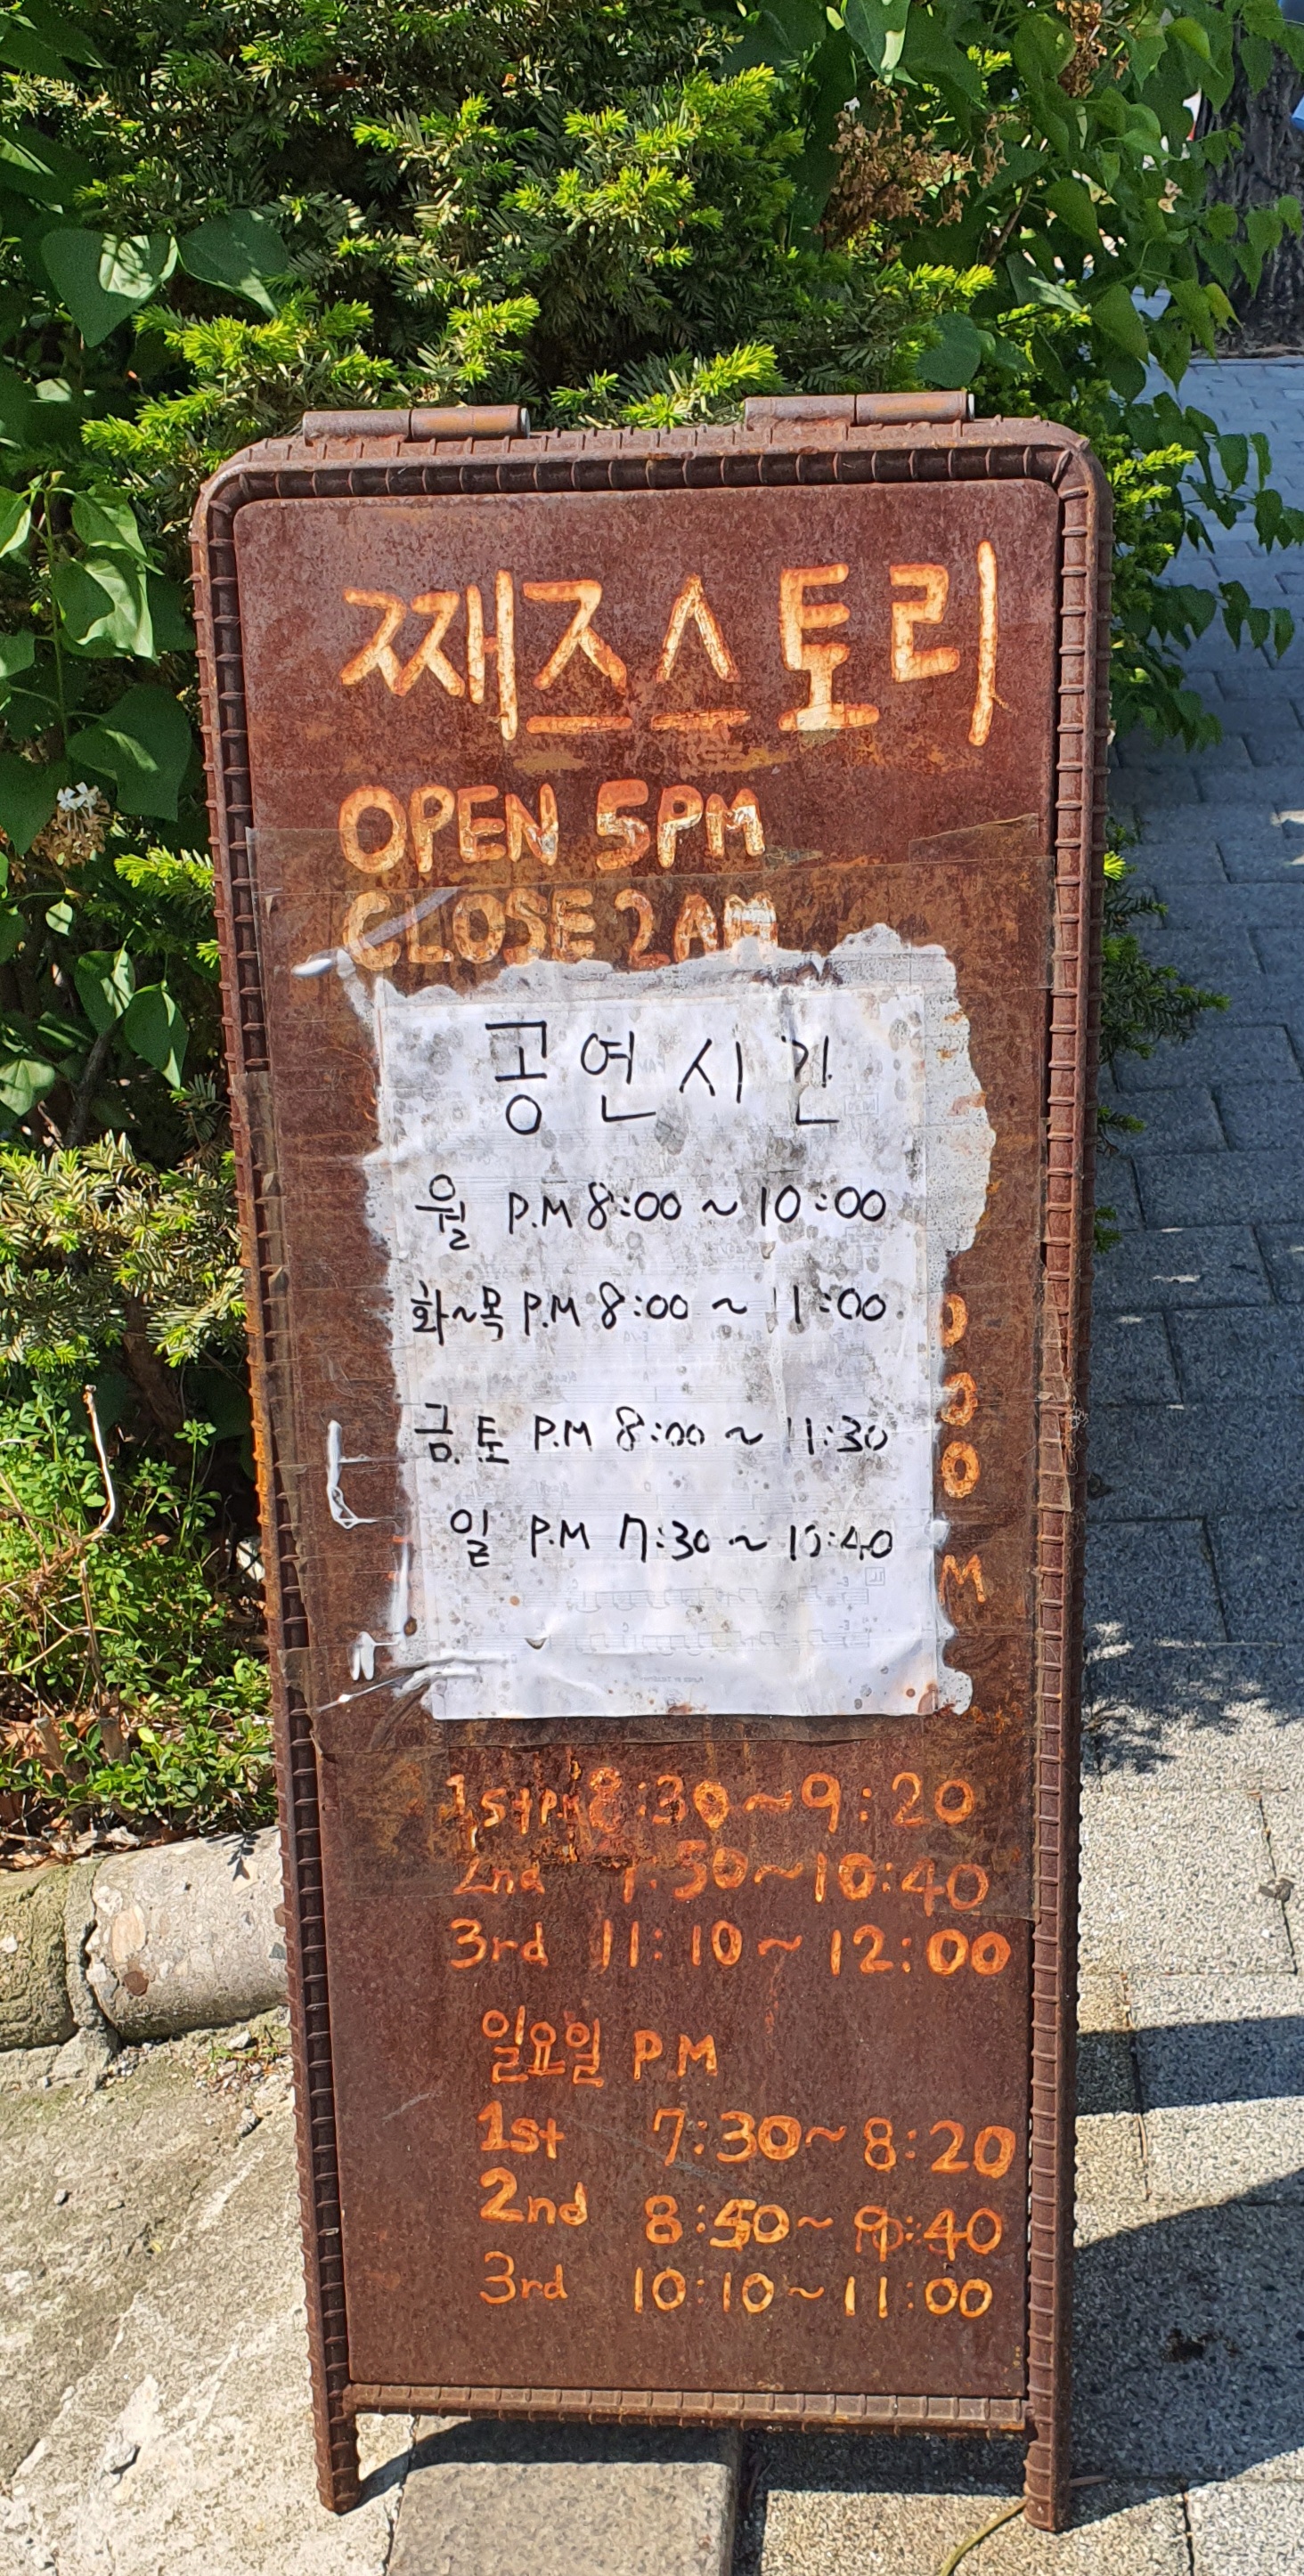 째즈스토리
OPEN 5PM
CLOSE 2AM
공연시간
월 P.M 8:00 ~ 10:00
화~목 P.M 8:00 ~ 11:00
금.토 P.M 8:00 ~ 11:30
일 P.M 7:30 ~ 10:40
M
1st PM 8:30~9:20
2nd ~10:40
3rd 11:10~12:00
일요일 P.M
1st 7:30~8:20
2nd 8:50~9:40
3rd 10:10~11:00